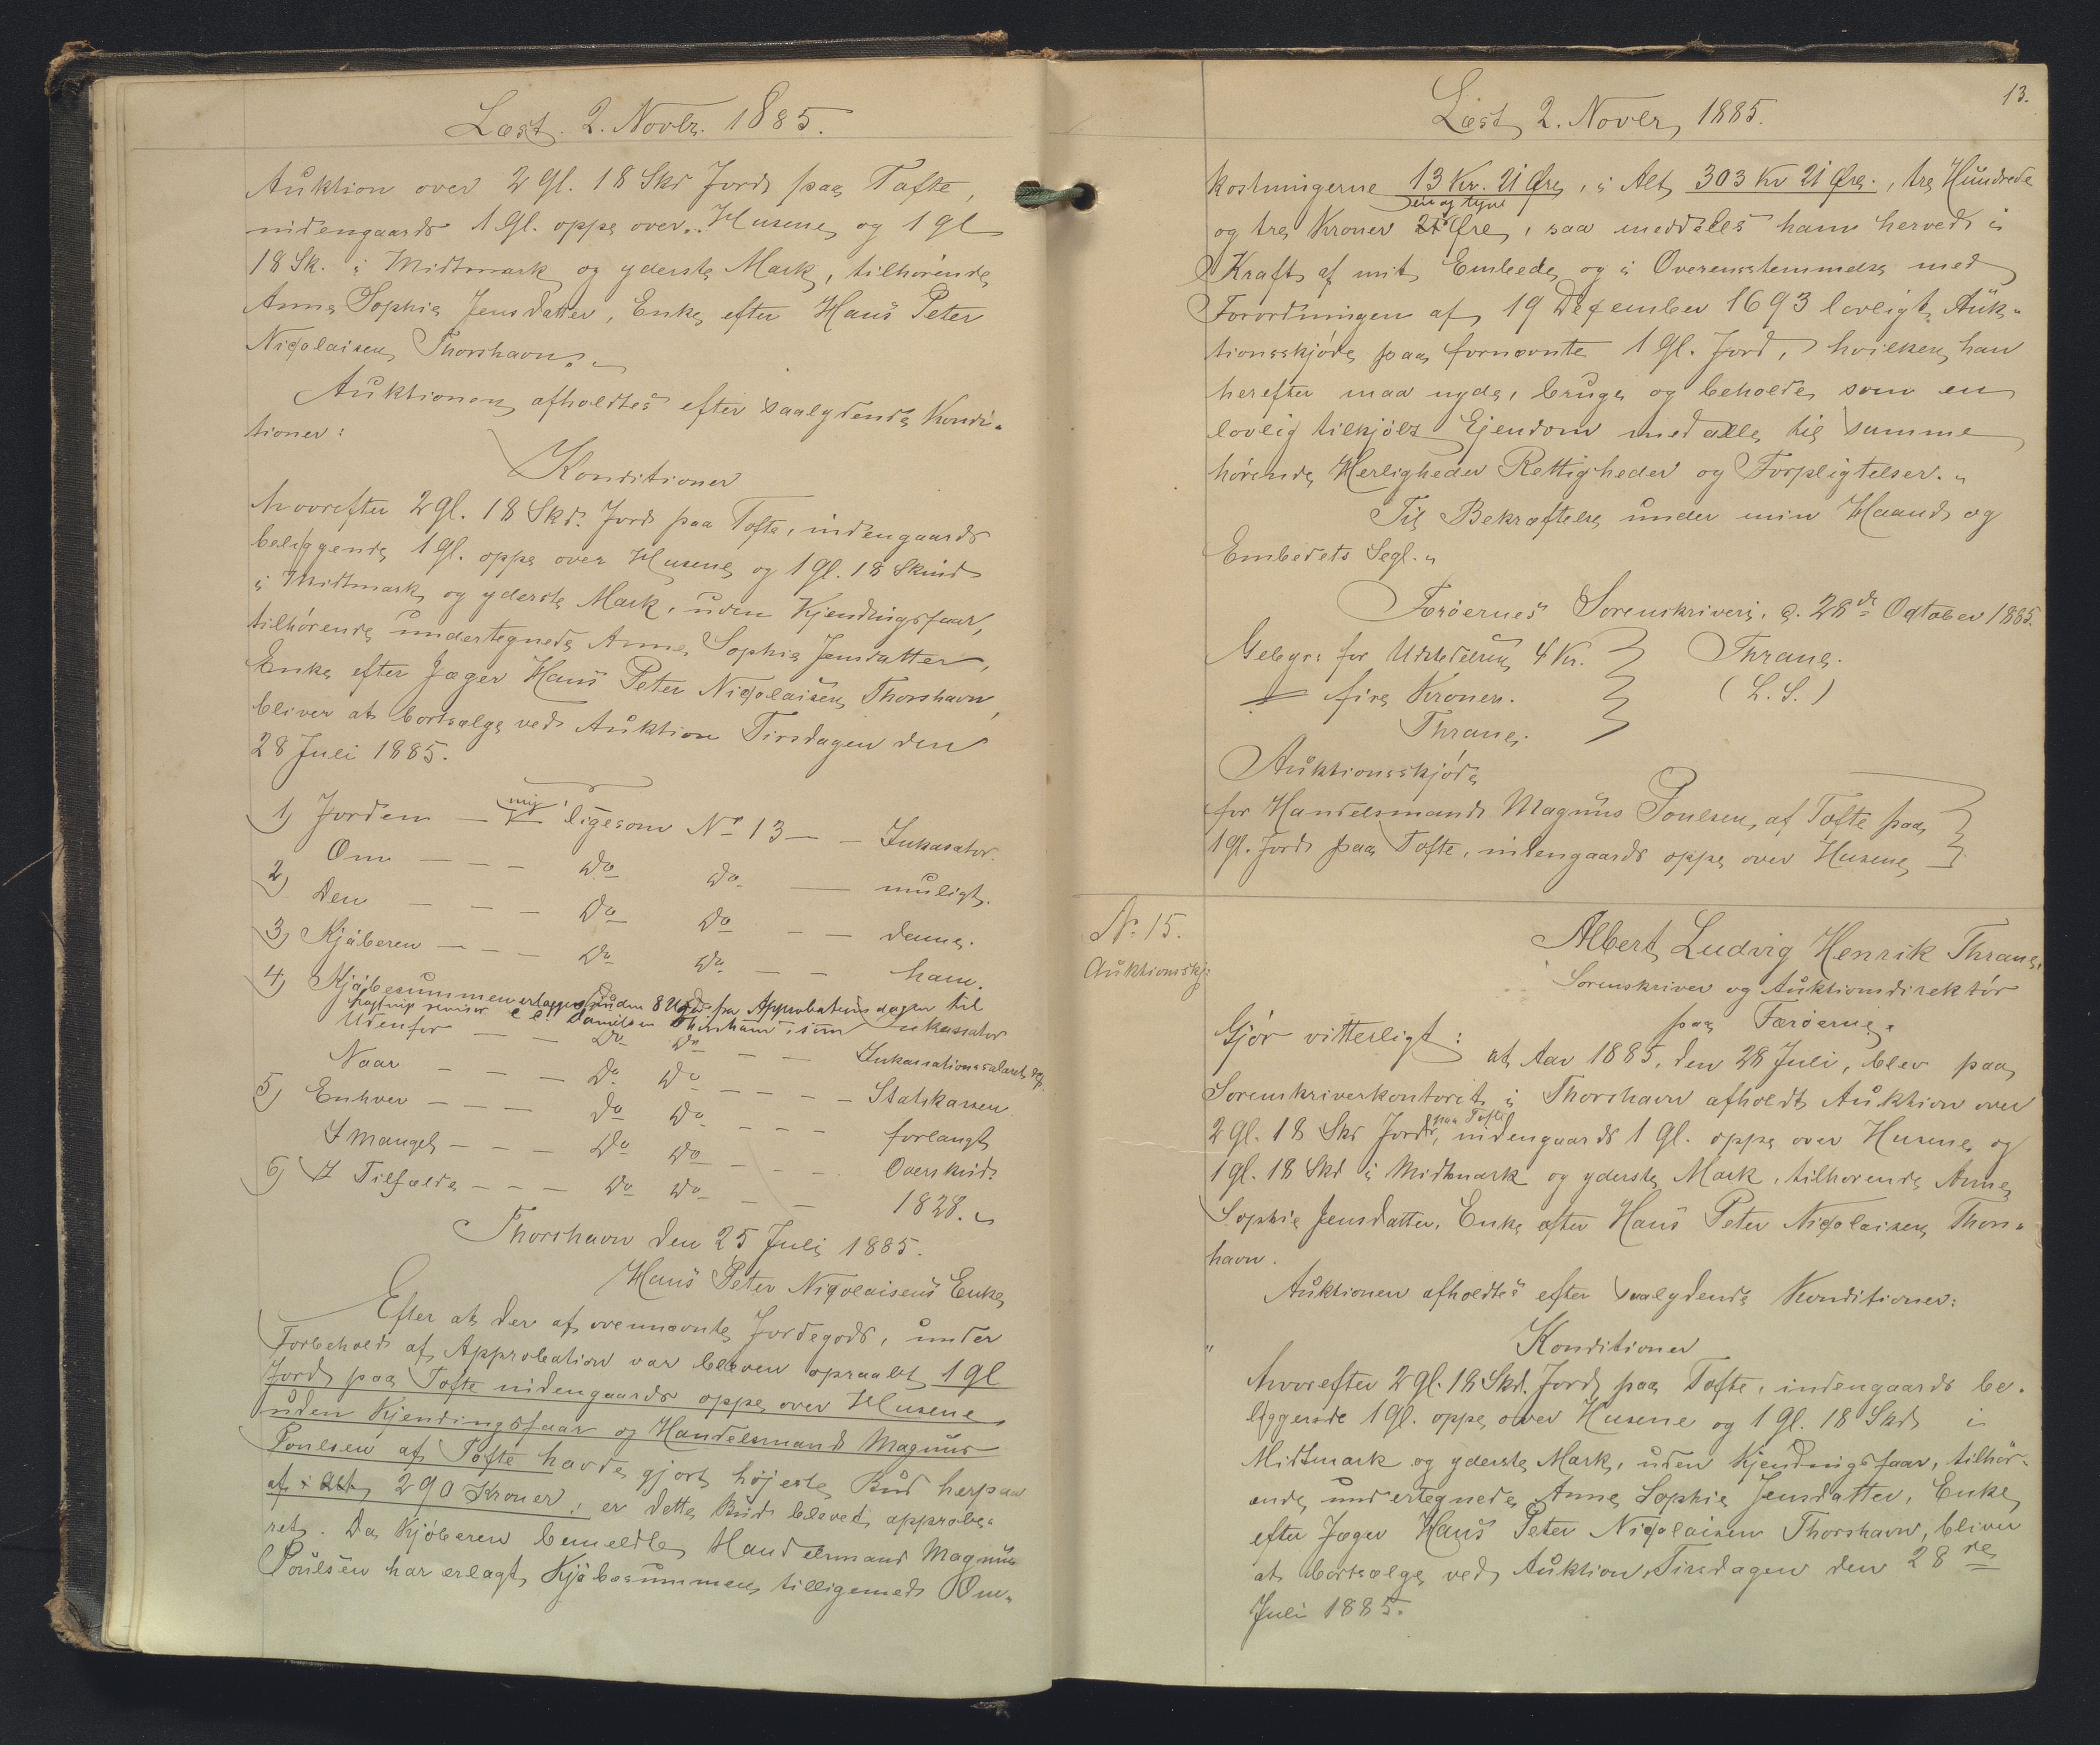 Læst. 2. Novbr. 1885.
Auktion over 2 Gl. 18 Skd Jord paa Tofte,
indengaards 1 Gl. oppe over Husene og 1 gl
18 Sk. i Midtmark og yderste Mark, tilhørende
Anne Sophie Jensdatter, Enke efter Hans Peter
Nicolaisen Thorshavn.
Auktionen afholdtes efter saalydende Kondi-
tioner:
Konditioner
hvorefter 2 gl. 18 Skd. Jord paa Tofte, indengaards
beliggende 1 Gl. oppe over Husene og 1 gl. 18 Skind
i Midtmark og yderste Mark, uden Kjendingsfaar,
tilhørende undertegnede Anne Sophie Jensdatter,
Enke efter Jæger Hans Peter Nicolaisen Thorshavn,
bliver at bortsælge ved Auktion Tirsdagen den
28 Juli 1885.
1) Jorden — mig ligesom No 13 — — Inkasator.
Om — — — Do Do — muligt.
2) Den — — — Do Do — — denne.
3) Kjøberen — — — Do Do — — ham.
4) Kjøbesummen erlægges inden 8 Uger fra Approbationsdagen til
C. C. Danielsen Thorshavn, som Inkassator
Udenfor — — Do Do — — Inkassationssalæret
Naar — — — Do Do — — — Statskassen
5) Enhver — — — Do Do — — — forlangt
I Mangel — — — Do Do — — — Overskud.
6) I Tilfælde — — — Do Do — — 1828.
Thorshavn den 25 Juli 1885.
Hans Peter Nicolaisens Enke
Efter at der af ovennævnte Jordegods, under
Forbehold af Approbation var bleven opraabt 1 gl
Jord paa Tofte indengaards oppe over Husene
uden Kjendingsfaar og Handelsmand Magnus
Poulsen af Tofte havde gjort højeste Bud herpaa
af i alt 290 Kroner, er dette Bud blevet approbe-
ret. Da Kjøberen bemeldte Handelsmand Magnus
Poulsen har erlagt Kjøbesummen tilligemed Om-
13.
Læst 2. Novbr, 1885.
kostningerne 13 Kr. 21 Øre, i Alt 303 Kr 21 Øre, tre Hundrede
en og tyve
og tre Kroner 21 Øre, saa meddeles ham herved i
Kraft af mit Embede og i Overensstemmelse med
Forordningen af 19 December 1693 lovligt Auk-
tionsskjøde paa fornævnte 1 Gl. Jord, hvilken han
herefter maa nyde, bruge og beholde som en
lovlig tilkjøbt Ejendom med alle til samme
hørende Herligheder Rettigheder og Forpligtelser.
Til Bekræftelse under min Haand og
Embedets Segl.
Færøernes Sorenskriveri, d. 28de October 1885.
Gebyr for Udstedelsen 4 Kr. Thrane.
fire Kroner. (L. S.)
Thrane.
Auktionsskjøde
for Handelsmand Magnus Poulsen, af Tofte paa
1 gl. Jord paa Tofte, indengaards oppe over Husene
No. 15.
Auktionsskj:
Albert Ludvig Henrik Thrane,
Sorenskriver og Auktionsdirektør
paa Færøerne.
Gjør vitterligt:
at Aar 1885, den 28 Juli, blev paa
Sorenskriverkontoret i Thorshavn afholdt Auktion over
paa Tofte
2 Gl. 18 Skd Jord, indengaards 1 Gl. oppe over Husene og
1 gl. 18 Skd i Midtmark og yderste Mark, tilhørende Anne
Sophie Jensdatter, Enke efter Hans Peter Nicolaisen Thors-
havn.
Auktionen afholdtes efter saalydende Konditioner:
Konditioner
hvorefter 2 gl. 18 Skd. Jord paa Tofte, indengaards be-
liggende 1 Gl. oppe over Husene og 1 Gl. 18 Skd i
Midtmark og yderste Mark, uden Kjendingsfaar, tilhør-
ende undertegnede Anne Sophie Jensdatter, Enke
efter Jæger Hans Peter Nicolaisen Thorshavn, bliver
at bortsælge ved Auktion Tirsdagen den 28de
Juli 1885.